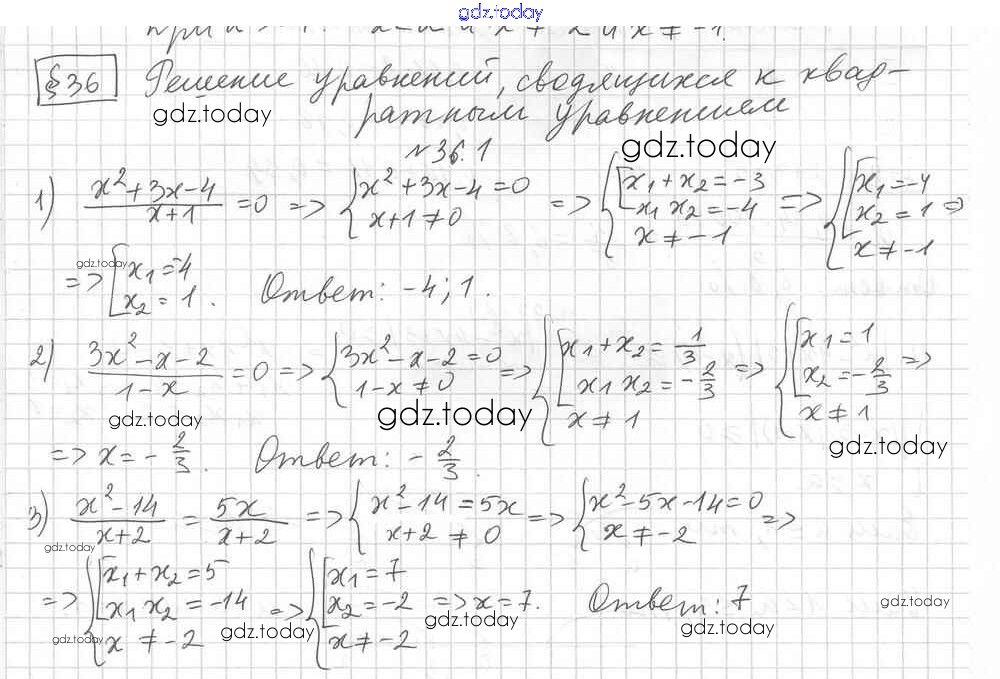 gdz.today
при a > -1 x = a и x ≠ -1.
§36 Решение уравнений, сводящихся к квад-
gdz.today ратным уравнением
№36.1 gdz.today
1) (x² + 3x - 4)/(x + 1) = 0 => { x² + 3x - 4 = 0; x + 1 ≠ 0 => { [ x₁ + x₂ = -3; x₁ x₂ = -4; x ≠ -1 => { [ x₁ = -4; x₂ = 1; x ≠ -1 =>
gdz.today
=> [ x₁ = -4; x₂ = 1. Ответ: -4; 1.
2) (3x² - x - 2)/(1 - x) = 0 => { 3x² - x - 2 = 0; 1 - x ≠ 0 => { [ x₁ + x₂ = 1/3; x₁ x₂ = -2/3; x ≠ 1 => { [ x₁ = 1; x₂ = -2/3; x ≠ 1 =>
gdz.today gdz.today gdz.today
=> x = -2/3. Ответ: -2/3.
3) (x² - 14)/(x + 2) = 5x/(x + 2) => { x² - 14 = 5x; x + 2 ≠ 0 => { x² - 5x - 14 = 0; x ≠ -2 =>
gdz.today
=> { [ x₁ + x₂ = 5; x₁ x₂ = -14; x ≠ -2 => { [ x₁ = 7; x₂ = -2; x ≠ -2 => x = 7. Ответ: 7
gdz.today gdz.today gdz.today gdz.today gdz.today